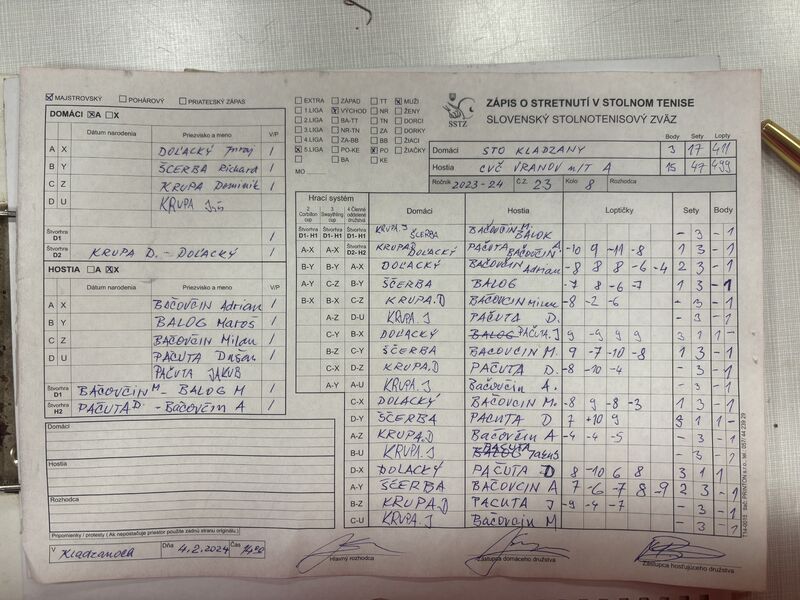 MAJSTROVSKÝ POHÁROVÝ PRIATEĽSKÝ ZÁPAS
DOMÁCI A X
Dátum narodenia Priezvisko a meno V/P
A X DOĽACKÝ
B Y ŠČERBA Richard V
C Z KRUPA Dominik V
D U KRUPA
Štvorhra D1
Štvorhra D2 KRUPA D. - DOĽACKÝ
HOSTIA A X
Dátum narodenia Priezvisko a meno V/P
A X BAČOVČIN Adrian V
B Y BALOG Maroš V
C Z BAČOVČIN Milan V
D U PAČUTA Dušan V
PAČUTA JAKUB
Štvorhra D1 BAČOVČIN M - BALOG M
Štvorhra H2 PAČUTA D. - BAČOVČIN A
Domáci
Hostia
Rozhodca
Pripomienky / protesty ( Ak nepostačuje priestor použite zadnú stranu originálu )
V Kladzanoch Dňa 4.2.2024 Čas
EXTRA ZÁPAD TT MUŽI
1.LIGA VÝCHOD NR ŽENY
2.LIGA BA-TT TN DORCI
3.LIGA NR-TN ZA DORKY
4.LIGA ZA-BB BB ŽIACI
5.LIGA PO-KE PO ŽIAČKY
BA KE
MO
SSTZ
ZÁPIS O STRETNUTÍ V STOLNOM TENISE
SLOVENSKÝ STOLNOTENISOVÝ ZVÄZ
Body Sety Lopty
Domáci STO KLADZANY 3 17 411
Hostia CVČ VRANOV n/T A 15 47 499
Ročník 2023-24 Č.Z. 23 Kolo 8 Rozhodca
Hrací systém
2 Corbillon cup 3 Swaythling cup 4 Členné oddielené družstvá
Domáci Hostia Loptičky Sety Body
D1-H1 D1-H1 D1-H1 KRUPA J ŠČERBA BAČOVČIN M. BALOK - 3 - 1
A-X A-X D2-H2 KRUPA D DOĽACKÝ PAČUTA BAČOVČIN A. -10 9 -11 -8 1 3 - 1
B-Y B-Y A-X DOĽACKÝ BAČOVČIN Adrian -8 8 8 -6 -4 2 3 - 1
A-Y C-Z B-Y ŠČERBA BALOG -7 8 -6 -7 1 3 - 1
B-X B-X C-Z KRUPA.D BAČOVCIN Milan -8 -2 -6 - 3 - 1
D-U KRUPA.J PAČUTA D. - 3 - 1
C-Y B-X DOĽACKÝ PAČUTA.J 9 -9 9 9 3 1 1 -
B-Z C-Y ŠČERBA BAČOVCIN M. 9 -7 -10 -8 1 3 - 1
C-X D-Z KRUPA.D PAČUTA D. -8 -10 -4 - 3 - 1
A-Y A-U KRUPA.J BAČOVČIN A. - 3 - 1
C-X DOĽACKÝ BAČOVCIN M. -8 9 -8 -3 1 3 - 1
D-Y ŠČERBA PACUTA D 7 +10 9 3 1 1 -
A-Z KRUPA.D BAČOVČIN A -4 -4 -5 - 3 - 1
B-U KRUPA.J PAČUTA - 3 - 1
D-X DOLACKÝ PAČUTA D 8 -10 6 8 3 1 1
A-Y ŠČERBA BAČOVCIN A 7 -6 -7 8 -9 2 3 - 1
B-Z KRUPA.D PACUTA J -9 -4 -7 - 3 - 1
C-U KRUPA.J BAČOVČIN M - 3 - 1
Hlavný rozhodca
Zástupca domáceho družstva
Zástupca hosťujúceho družstva